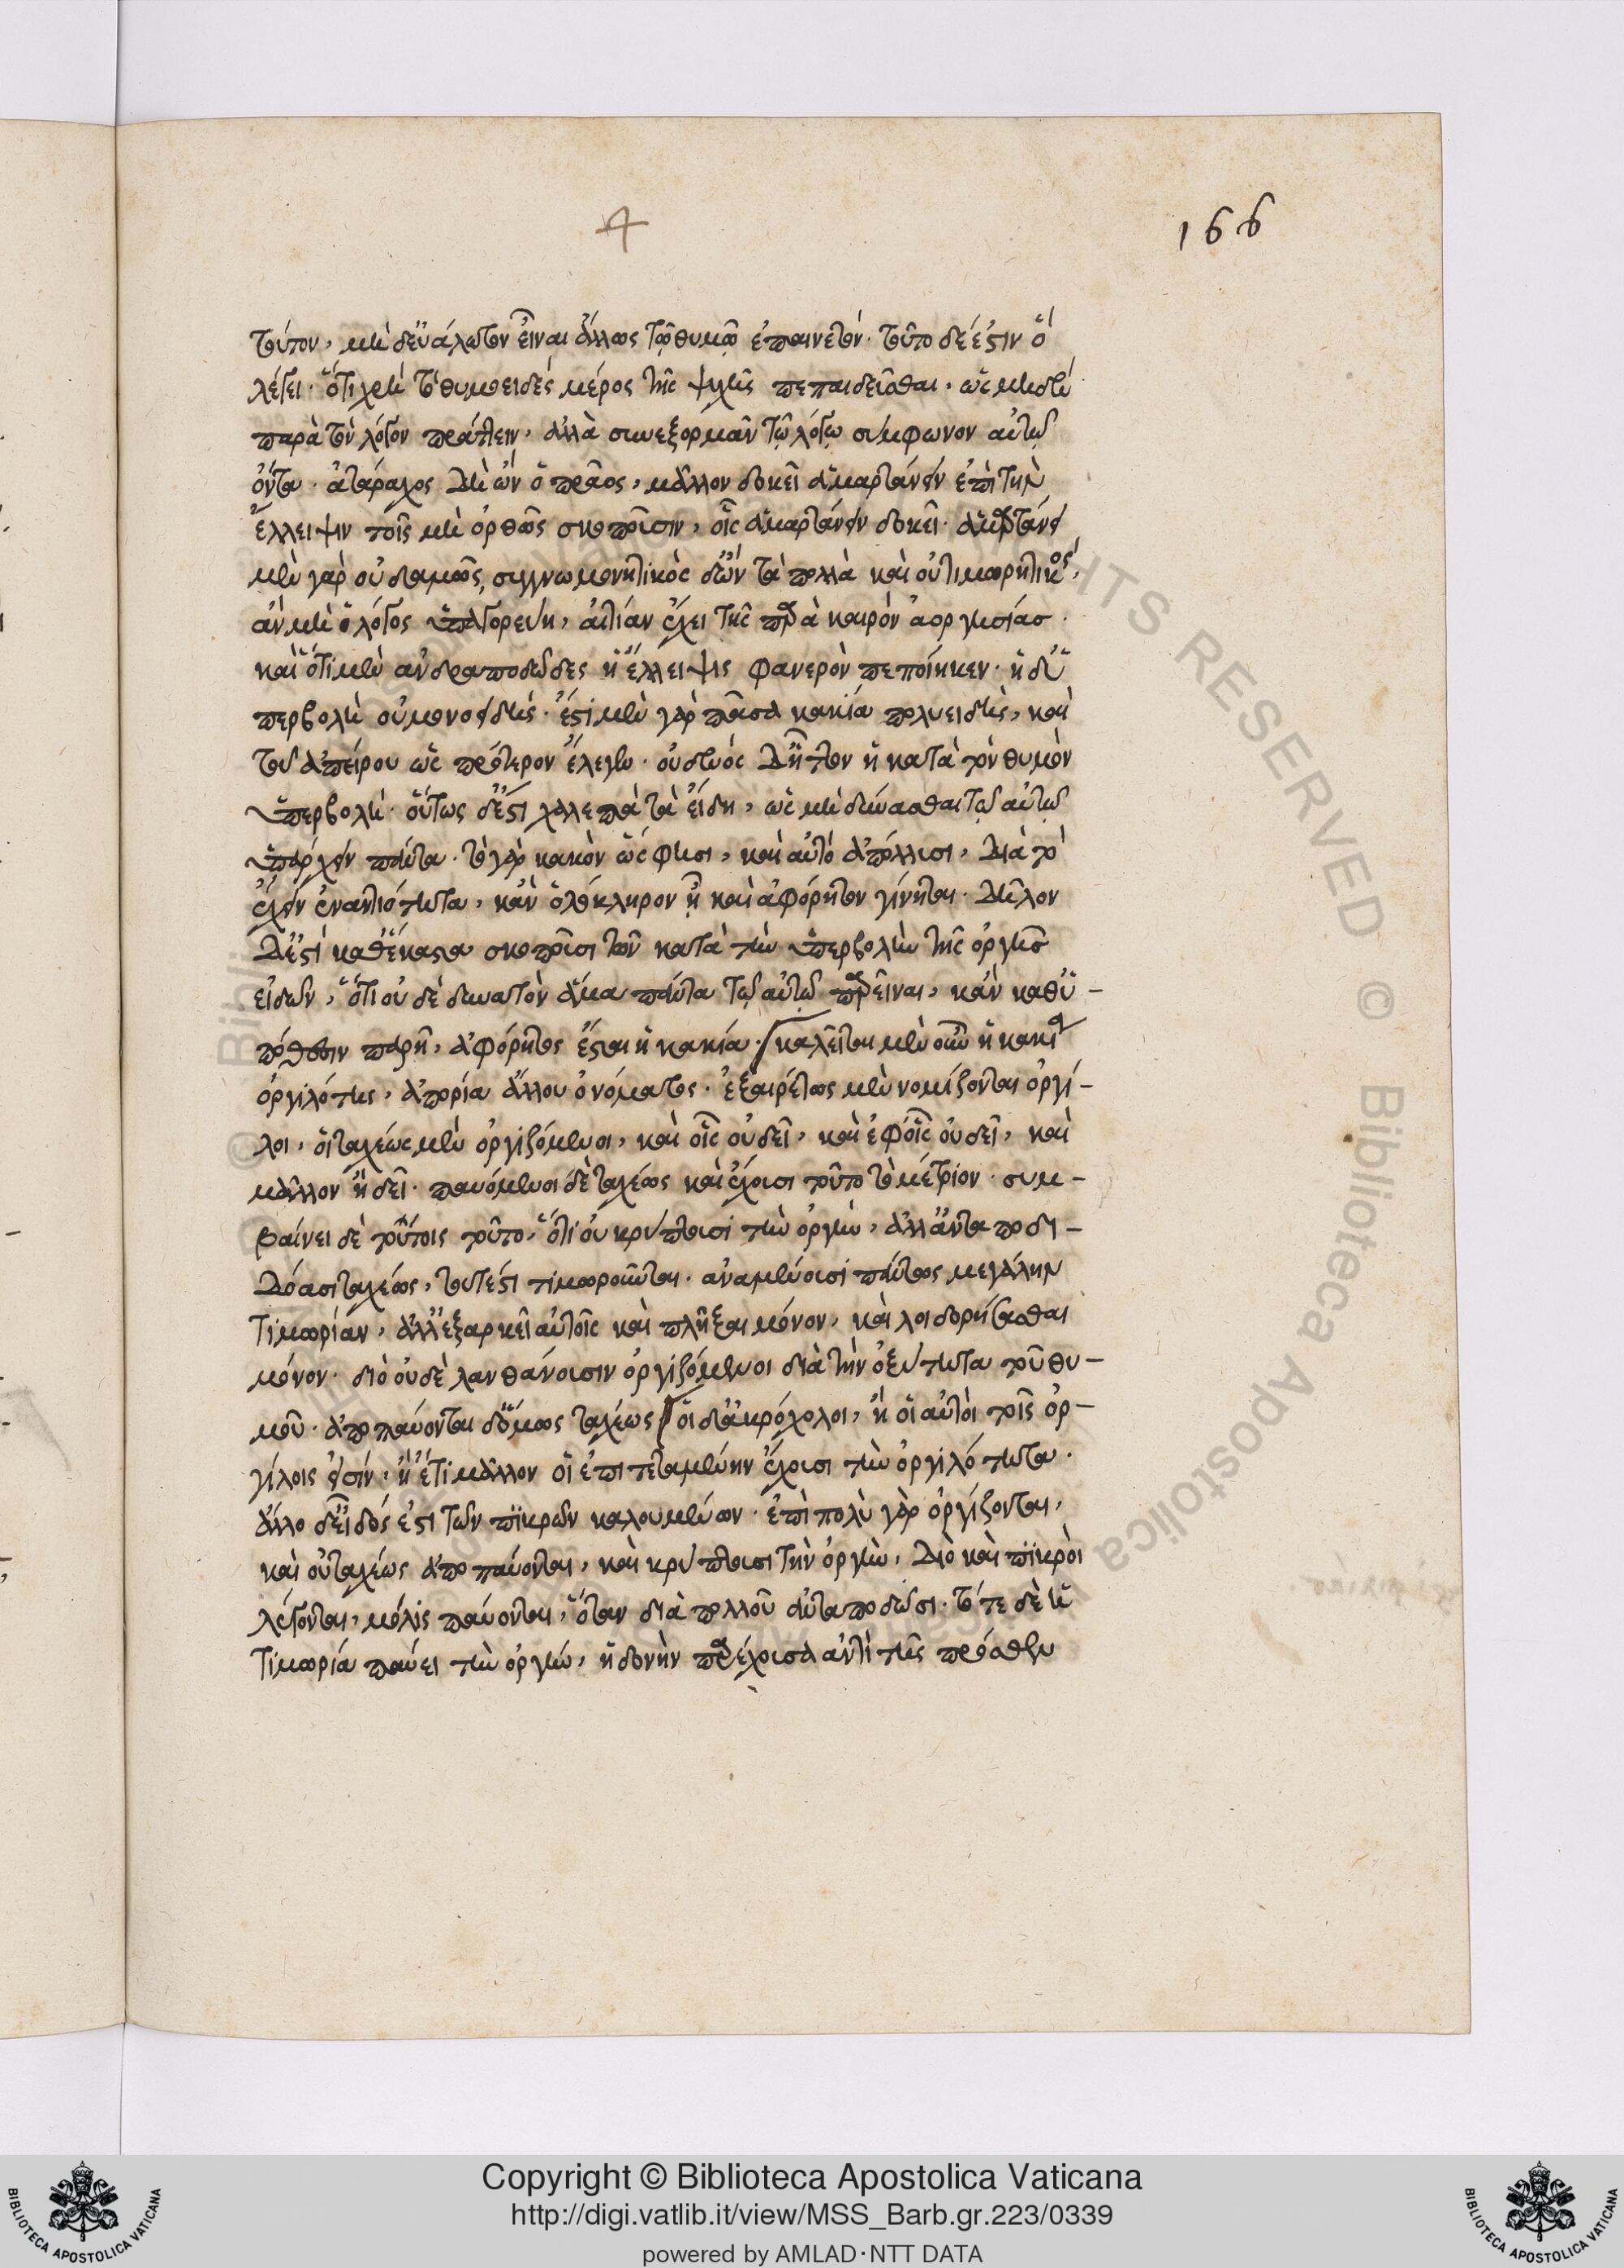 4
166
τούτον, μὴ δ' εὐάλωτον εἶναι ἄλλως τῷ θυμῷ ἐπαινετόν. τοῦτο δέ ἐστιν ὃ
λέγει. ὅτι χρὴ τὸ θυμοειδὲς μέρος τῆς ψυχῆς πεπαιδεῦσθαι. ὡς μηδὲν
παρὰ τὸν λόγον πράττειν, ἀλλὰ συνεξορμᾶν τῷ λόγῳ σύμφωνον αὐτῷ
ὄντα. ἀτάραχος δὴ ὢν ὁ πρᾶος, μᾶλλον δοκεῖ ἁμαρτάνειν ἐπὶ τὴν
ἔλλειψιν τοῖς μὴ ὀρθῶς σκοποῦσιν, οἷς ἁμαρτάνειν δοκεῖ. ἁμαρτάνει
μὲν γὰρ οὐδαμῶς, συγγνωμονητικὸς δ' ὢν τὰ πολλὰ καὶ οὐ τιμωρητικός,
ἂν μὴ ὁ λόγος ὑπαγορεύῃ, αἰτίαν ἔχει τῆς παρὰ καιρὸν ἀοργησίας.
καὶ ὅτι μὲν ανδραποδῶδες ἡ ἔλλειψις φανερὸν πεποίηκεν. ἡ δ' ὑ
περβολὴ οὐ μονοειδής. ἔστι μὲν γὰρ πᾶσα κακία πολυειδὴς, καὶ
τοῦ ἀπείρου ὡς πρότερον ἔλεγεν. οὐδενὸς δ' ἧττον ἡ κατὰ τὸν θυμὸν
ὑπερβολή. οὕτως δ' ἔστι χαλεπὰ τὰ εἴδη, ὡς μὴ δύνασθαι τῷ αὐτῷ
ὑπάρχειν πάντα. τὸ γὰρ κακὸν ὥς φησι, καὶ αὐτὸ ἀπόλλυσι, διὰ τὸ
ἔχειν ἐναντιότητα, κἂν ὁλόκληρον ᾖ καὶ ἀφόρητον γίνηται. δῆλον
δ' ἐστὶ καθ' ἕκαστα σκοποῦσι τῶν κατὰ τὴν ὑπερβολὴν τῆς ὀργῆς
εἰδῶν, ὅτι οὐδὲ δυνατὸν ἅμα πάντα τῷ αὐτῷ παρεῖναι, κἂν καθ' ὑ-
πόθεσιν παρῇ, ἀφόρητος ἔσται ἡ κακία. καλεῖται μὲν οὖν ἡ κακία
ὀργιλότης, ἀπορία ἄλλου ὀνόματος. ἐξαιρέτως μὲν νομίζονται ὀργί-
λοι, οἱ ταχέως μὲν ὀργιζόμενοι, καὶ οἷς οὐ δεῖ, καὶ ἐφ' οἷς οὐ δεῖ, καὶ
μᾶλλον ἢ δεῖ. παυόμενοι δὲ ταχέως καὶ ἔχουσι τοῦτο τὸ μέτριον. συμ-
βαίνει δὲ τούτοις τοῦτο, ὅτι οὐ κρύπτουσι τὴν ὀργὴν, ἀλλ' ἀνταποδι-
δόασι ταχέως, τουτέστι τιμωροῦνται. αναμένουσι πάντως μεγάλην
τιμωρίαν, ἀλλ' ἐξαρκεῖ αὐτοῖς καὶ πλῆξαι μόνον, καὶ λοιδορήσασθαι
μόνον. διὸ οὐδὲ λανθάνουσιν ὀργιζόμενοι διὰ τὴν ὀξύτητα τοῦ θυ-
μοῦ. ἀποπαύονται δ' ὅμως ταχέως. οἱ δ' ἀκρόχολοι, ἢ οἱ αὐτοὶ τοῖς ὀρ-
γίλοις εἰσίν, ἢ ἔτι μᾶλλον οἳ ἐπιτεταμένην ἔχουσι τὴν ὀργιλότητα.
ἄλλο δ' εἶδός ἐστι τῶν πικρῶν καλουμένων. ἐπὶ πολὺ γὰρ ὀργίζονται,
καὶ οὐ ταχέως ἀποπαύονται, καὶ κρύπτουσι τὴν ὀργὴν, διὸ καὶ πικροὶ
λέγονται, μόλις παύονται, ὅταν διὰ πολλοῦ ἀνταποδῶσι. τότε δὲ ἡ
τιμωρία παύει τὴν ὀργὴν, ἡδονὴν παρέχουσα ἀντὶ τῆς πρόσθεν
Copyright © Biblioteca Apostolica Vaticana
http://digi.vatlib.it/view/MSS_Barb.gr.223/0339
powered by AMLAD·NTT DATA